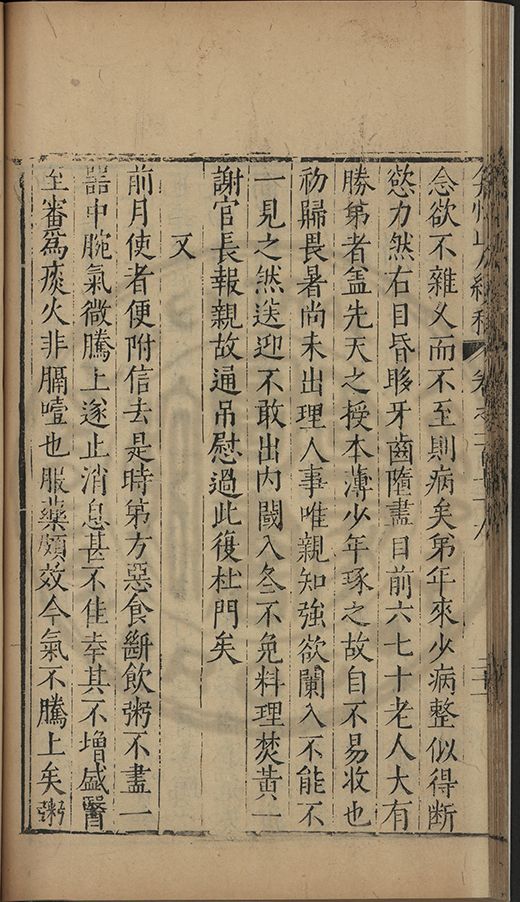 弇州山人續稿 卷之一百十八
念欲不雜又而不至則病矣第年來少病整似得断
慾力然右目昏眵牙齒隨盡目前六七十老人大有
勝第者盖先天之授本薄少年琢之故自不易收也
初歸畏暑尚未出理人事唯親知強欲闌入不能不
一見之然送迎不敢出内閾入冬不免料理焚黃一
謝官長報親故通吊慰過此復杜門矣
又
前月使者便附信去是時第方惡食斷飲粥不盡一
器中脘氣微騰上遂止消息甚不佳幸其不增盛醫
至審為痰火非膈噎也服藥頗效今氣不騰上矣粥